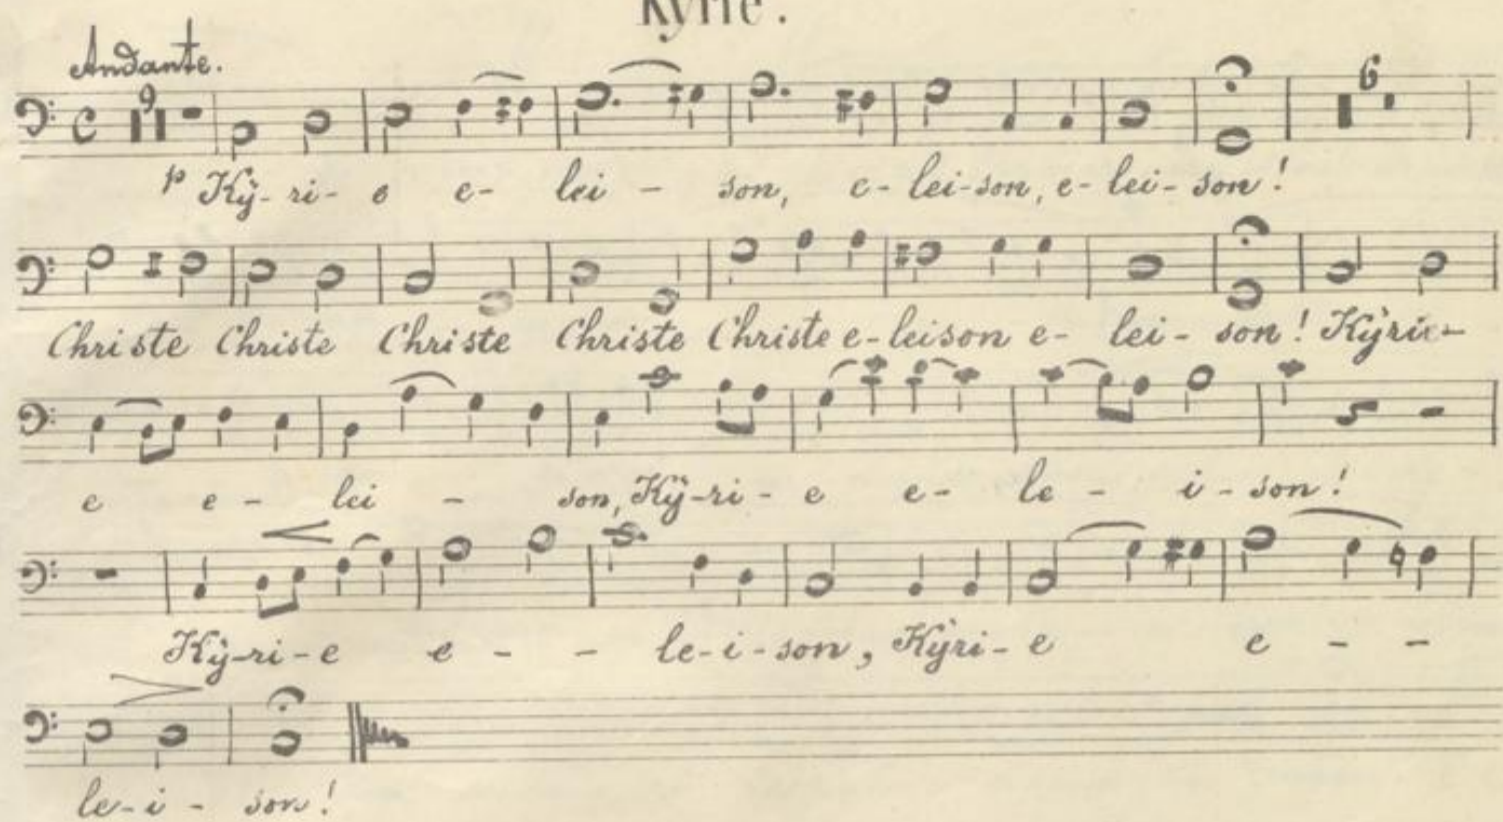 Kyrie.
Andante.
9 6
p Kÿ-ri-e e- lei - son, e-lei-son, e-lei-son!
Christe Christe Christe Christe Christe e-leison e- lei- son! Kÿrie-
e e- lei - son, Kÿ-ri-e e- le - i-son!
Kÿ-ri-e e - - le-i-son, Kÿri-e e - -
le-i- son!